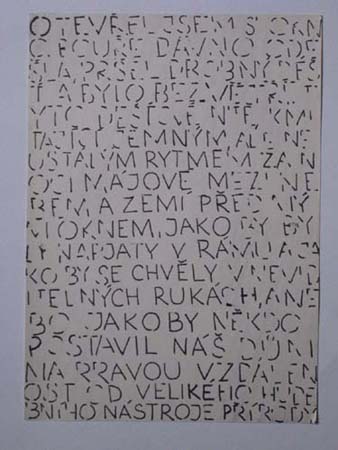 OTEVŘEL JSEM SI OKN
O BOUŘE DÁVNO ODE
ŠLA PRŠEL DROBNÝ DÉŠ
Ť A BYLO BEZVĚTŘÍ T
YTO DEŠŤOVÉ NITĚ KMI
TAJÍCÍ JEMNÝM ALE NE
USTÁLÝM RYTMEM ZA N
OCI MÁJOVÉ MEZI NE
BEM A ZEMÍ PŘED MÝ
M OKNEM, JAKO BY BY
LY NAPJATY V RÁMU A JA
KO BY SE CHVĚLY V NEVID
ITELNÝCH RUKÁCH, ANE
BO JAKO BY NĚKDO
POSTAVIL NÁŠ DŮM
NA PRAVOU VZDÁLEN
OST OD VELIKÉHO HUDE
BNÍHO NÁSTROJE PŘÍRODY